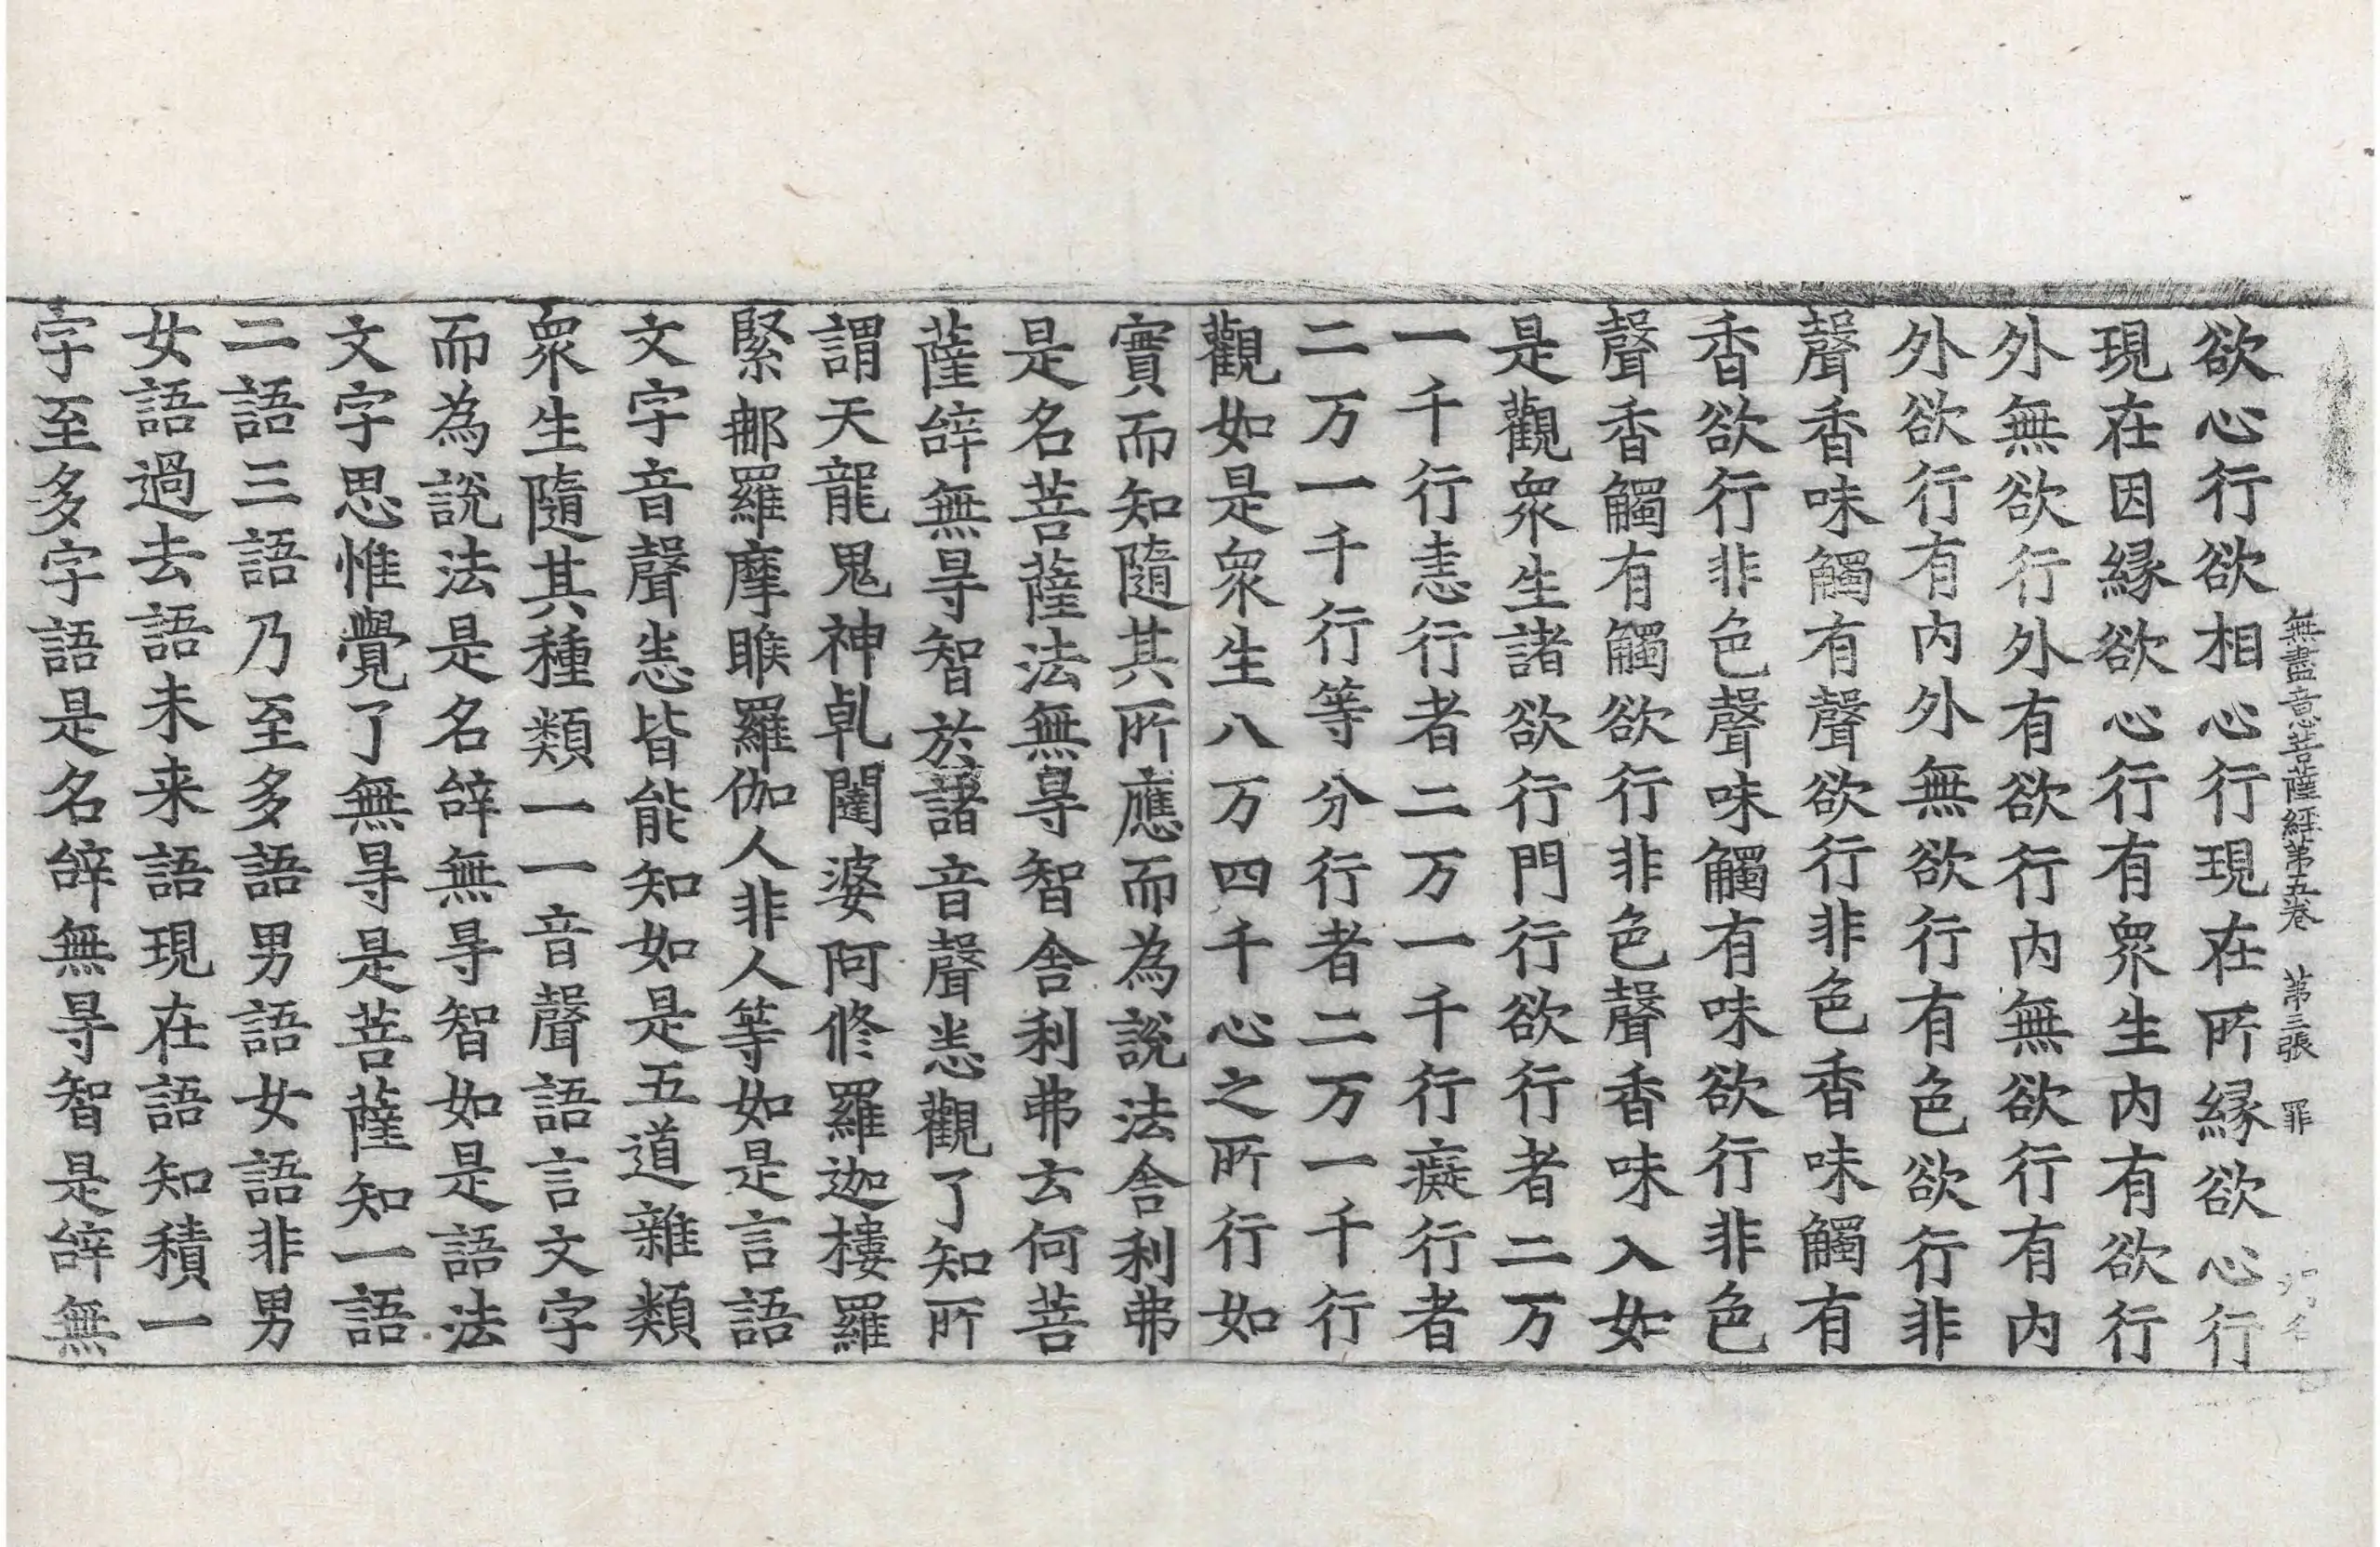 無盡意菩薩經第五卷　第三張　罪
欲心行欲相心行現在所縁欲心行
現在因縁欲心行有眾生内有欲行
外無欲行外有欲行内無欲行有内
外欲行有内外無欲行有色欲行非
聲香味觸有聲欲行非色香味觸有
香欲行非色聲味觸有味欲行非色
聲香觸有觸欲行非色聲香味入如
是觀眾生諸欲行門行欲行者二万
一千行恚行者二万一千行癡行者
二万一千行等分行者二万一千行
觀如是眾生八万四千心之所行如
實而知隨其所應而為說法舎利弗
是名菩薩法無㝵智舎利弗云何菩
薩辝無㝵智於諸音聲悉觀了知所
謂天龍鬼神乹闥婆阿修羅迦樓羅
緊那羅摩睺羅伽人非人等如是言語
文字音聲悉皆能知如是五道雜類
眾生隨其種類一一音聲語言文字
而為說法是名辝無㝵智如是語法
文字思惟覺了無㝵是菩薩知一語
二語三語乃至多語男語女語非男
女語過去語未来語現在語知積一
字至多字語是名辝無㝵智是辝無